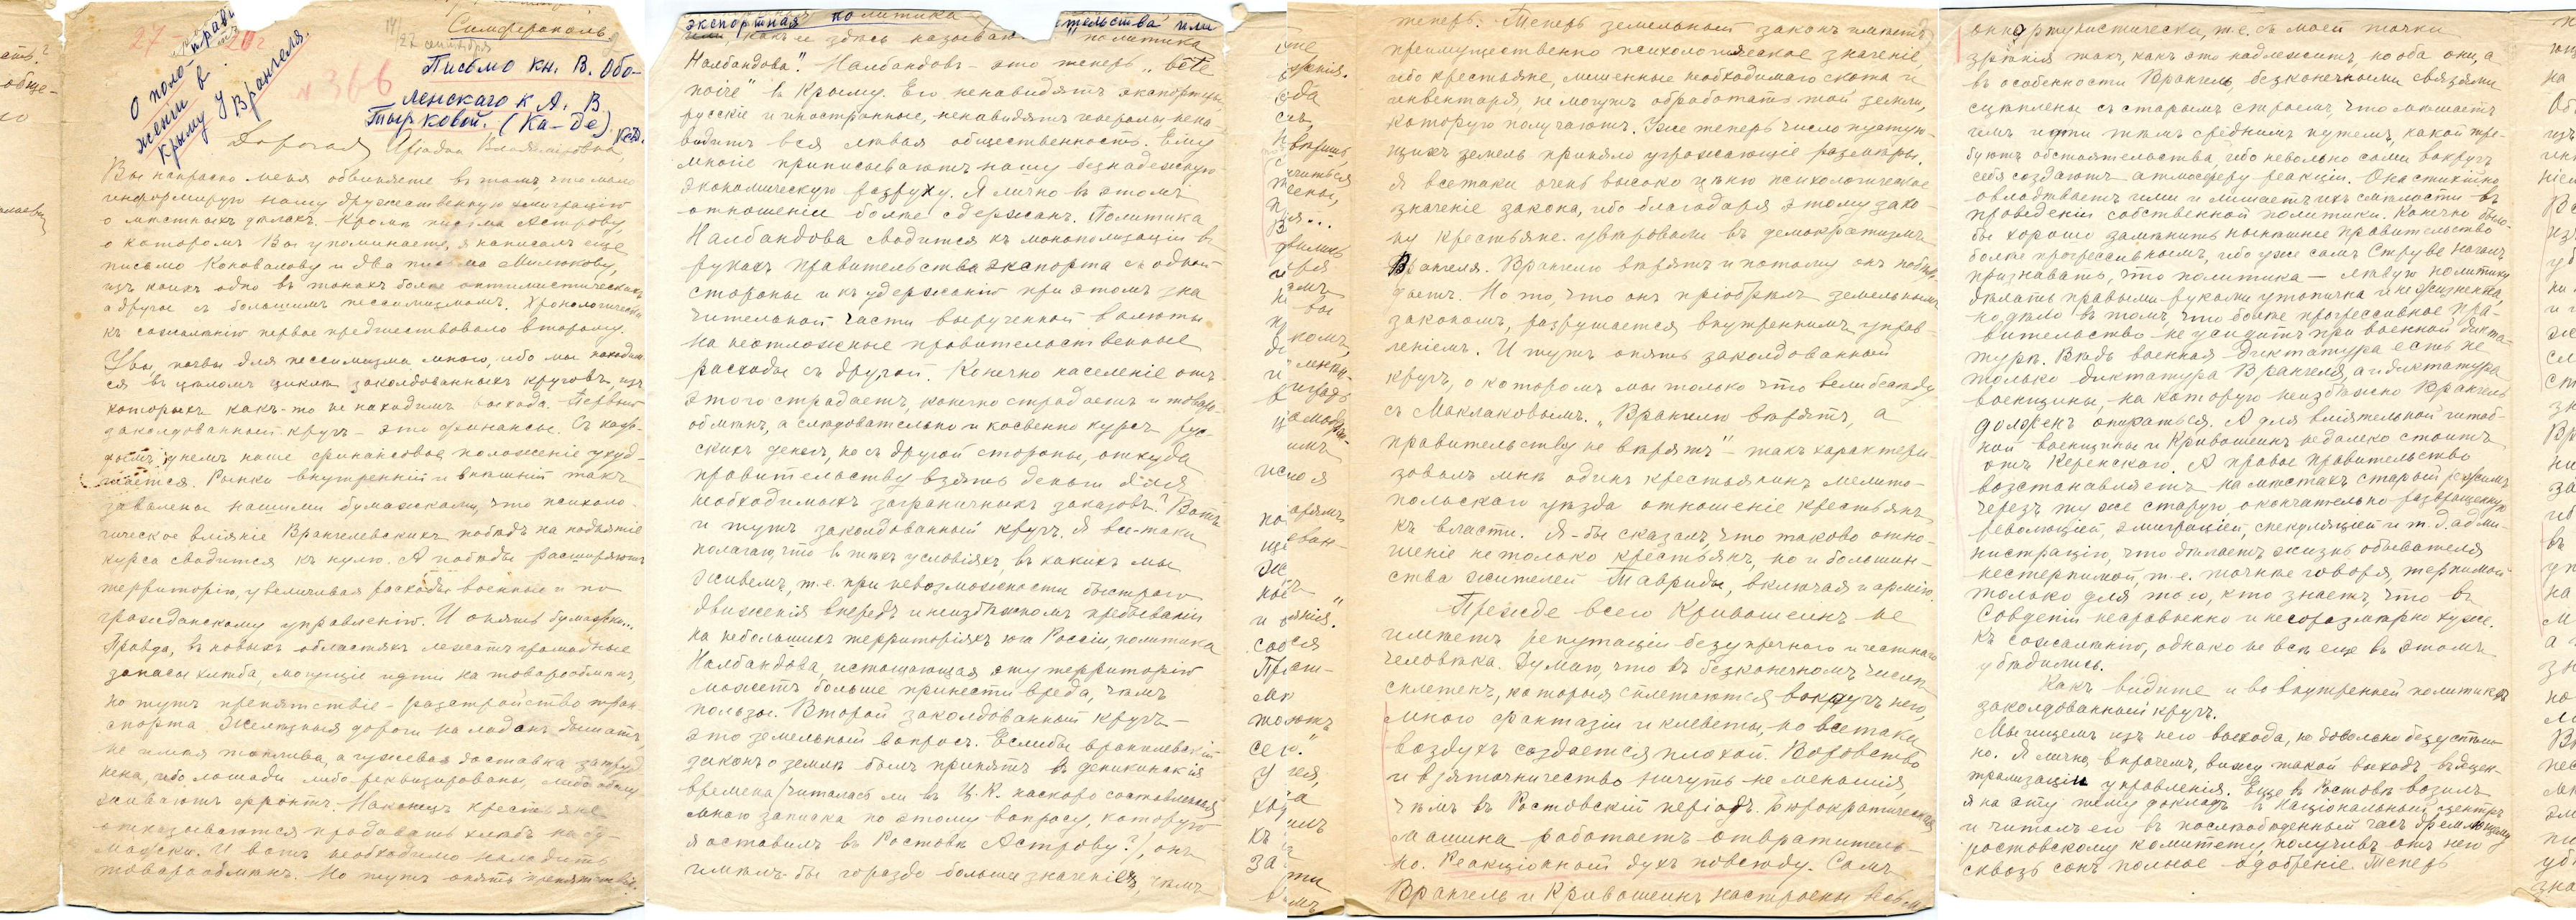 27 - 20г
14/27 сентября
Симферополь
О поло-
жении в
Крыму у
Врангеля.
№ 366
Письмо кн. В. Обо-
ленскаго к А. В.
Тырковой. (Ка-Де)
Дорогая Аріадна Владиміровна,
Вы напрасно меня обвиняете въ томъ, что мало
информирую нашу дружественную эмиграцію
о мѣстныхъ дѣлахъ. Кромѣ письма Астрову,
о которомъ Вы упоминаете, я написалъ еще
письмо Коновалову и два письма Милюкову,
изъ коихъ одно въ тонахъ болѣе оптимистическихъ,
а другое съ большимъ пессимизмомъ. Хронологически
къ сожалѣнію первое предшествовало второму.
Увы, почвы для пессимизма много, ибо мы находим-
ся въ цѣломъ циклѣ заколдованныхъ круговъ, изъ
которыхъ какъ-то не находимъ выхода. Первый
заколдованный кругъ – это финансы. Съ каж-
дымъ днемъ наше финансовое положеніе ухуд-
шается. Рынки внутренній и внѣшній такъ
завалены нашими бумажками, что психоло-
гическое вліяніе Врангелевскихъ побѣдъ на поднятіе
курса сводится къ нулю. А побѣды расширяютъ
территорію, увеличивая расходы военные и по
гражданскому управленію. И опять бумажки...
Правда, въ новыхъ областяхъ лежатъ громадные
запасы хлѣба, могущіе идти на товарообмѣнъ,
но тутъ препятствіе – разстройство тран-
спорта. Желѣзныя дороги на ладанъ дышатъ,
не имѣя топлива, а гужевая доставка затруд-
нена, ибо лошади либо реквизированы, либо обслу-
живаютъ фронтъ. Наконецъ крестьяне
отказываются продавать хлѣбъ на бу-
мажки. И вотъ необходимо наладить
товарообмѣнъ. Но тутъ опять препятствіе.
экспортная политика правительства или
какъ ее здѣсь называютъ "политика
Налбандова". Налбандовъ – это теперь "bête
noire" въ Крыму. Его ненавидятъ экспортеры
русскіе и иностранные, ненавидятъ генералы, нена-
видитъ вся лѣвая общественность. Ему
многіе приписываютъ нашу безнадежную
экономическую разруху. Я лично въ этомъ
отношеніи болѣе сдержанъ. Политика
Налбандова сводится къ монополизаціи въ
рукахъ правительства экспорта съ одной
стороны и къ удержанію при этомъ зна
чительной части вырученной валюты
на неотложные правительственные
расходы съ другой. Конечно населеніе отъ
этого страдаетъ, конечно страдаетъ и товаро-
обмѣнъ, а слѣдовательно и косвенно курсъ рус-
скихъ денегъ, но съ другой стороны, откуда
правительству взять деньги для
необходимыхъ заграничныхъ заказовъ? Вотъ
и тутъ заколдованный кругъ. Я все-таки
полагаю, что въ тѣхъ условіяхъ, въ какихъ мы
живемъ, т.е. при невозможности быстраго
движенія впередъ и неизбѣжномъ пребываніи
на небольшихъ территоріяхъ юга Россіи, политика
Налбандова, истощающая эту территорію
можетъ больше принести вреда, чѣмъ
пользы. Второй заколдованный кругъ –
это земельный вопросъ. Еслибы врангелевскій
законъ о землѣ былъ принятъ въ деникинскія
времена (читалась ли въ Ц.К. наскоро составленная
мною записка по этому вопросу, которую
я оставилъ въ Ростовѣ Астрову?), онъ
имѣлъ бы гораздо больше значенія, чѣмъ
теперь. Теперь земельный законъ имѣетъ
преимущественно психологическое значеніе,
ибо крестьяне, лишенные необходимаго скота и
инвентаря, не могутъ обработать той земли,
которую получаютъ. Уже теперь число пустую-
щихъ земель приняло угрожающіе размѣры.
Я всетаки очень высоко цѣню психологическое
значеніе закона, ибо благодаря этому зако-
ну крестьяне увѣровали въ демократизмъ
Врангеля. Врангелю вѣрятъ и потому онъ побѣж-
даетъ. Но то, что онъ пріобрѣлъ земельнымъ
закономъ, разрушается внутреннимъ управ-
леніемъ. И тутъ опять заколдованный
кругъ, о которомъ мы только что вели бесѣду
съ Маклаковымъ. "Врангелю вѣрятъ, а
правительству не вѣрятъ" – такъ характери-
зовалъ мнѣ одинъ крестьянинъ мелито-
польскаго уѣзда отношеніе крестьянъ
къ власти. Я-бы сказалъ, что таково отно-
шеніе не только крестьянъ, но и большин-
ства жителей Тавриды, включая и армію.
Прежде всего Кривошеинъ не
имѣетъ репутаціи безупречнаго и честнаго
человѣка. Думаю, что въ безконечномъ числѣ
сплетенъ, которыя сплетаются вокругъ него,
много фантазіи и клеветы, но всетаки
воздухъ создается плохой. Воровство
и взяточничество ничуть не меньшія,
чѣмъ въ Ростовскій періодъ. Бюрократическая
машина работаетъ отвратитель-
но. Реакціонный духъ повсюду. Самъ
Врангель и Кривошеинъ настроены вовсе
оппортунистически, т.е. съ моей точки
зрѣнія такъ, какъ это надлежитъ, но оба они, а
въ особенности Врангель, безконечными связями
сцѣплены съ старымъ строемъ, что мѣшаетъ
имъ идти тѣмъ среднимъ путемъ, какой тре-
буютъ обстоятельства, ибо невольно сами вокругъ
себя создаютъ атмосферу реакціи. Она стихійно
овладѣваетъ ими и лишаетъ ихъ смѣлости въ
проведеніи собственной политики. Конечно было-
бы хорошо замѣнить нынѣшнее правительство
болѣе прогрессивнымъ, ибо уже самъ Струве началъ
признавать, что политика – лѣвую политику
дѣлать правыми руками утопична и нежизненна,
но дѣло въ томъ, что болѣе прогрессивное пра-
вительство не усидитъ при военной дикта-
турѣ. Вѣдь военная диктатура есть не
только диктатура Врангеля, а и диктатура
военщины, на которую неизбѣжно Врангель
долженъ опираться. А для вліятельной штаб-
ной военщины и Кривошеинъ недалеко стоитъ
отъ Керенскаго. А правое правительство
возстанавливаетъ на мѣстахъ старый режимъ
черезъ ту же старую, окончательно развращенную
революціей, эмиграціей, спекуляціей и т.д. адми-
нистрацію, что дѣлаетъ жизнь обывателя
нестерпимой, т.е. точнѣе говоря, терпимой
только для того, кто знаетъ, что въ
Совдепіи несравненно и несоразмѣрно хуже.
Къ сожалѣнію, однако не всѣ еще въ этомъ
убѣдились.
Какъ видите и во внутренней политикѣ
заколдованный кругъ.
Мы ищемъ изъ него выхода, но довольно безуспѣш-
но. Я лично, впрочемъ, вижу такой выходъ въ децен-
трализаціи управленія. Еще въ Ростовѣ возилъ
я на эту тему докладъ въ Національный центръ
и читалъ его въ послѣобѣденный часъ дремлющему
ростовскому комитету, получивъ отъ него
сквозь сонъ полное одобреніе. Теперь